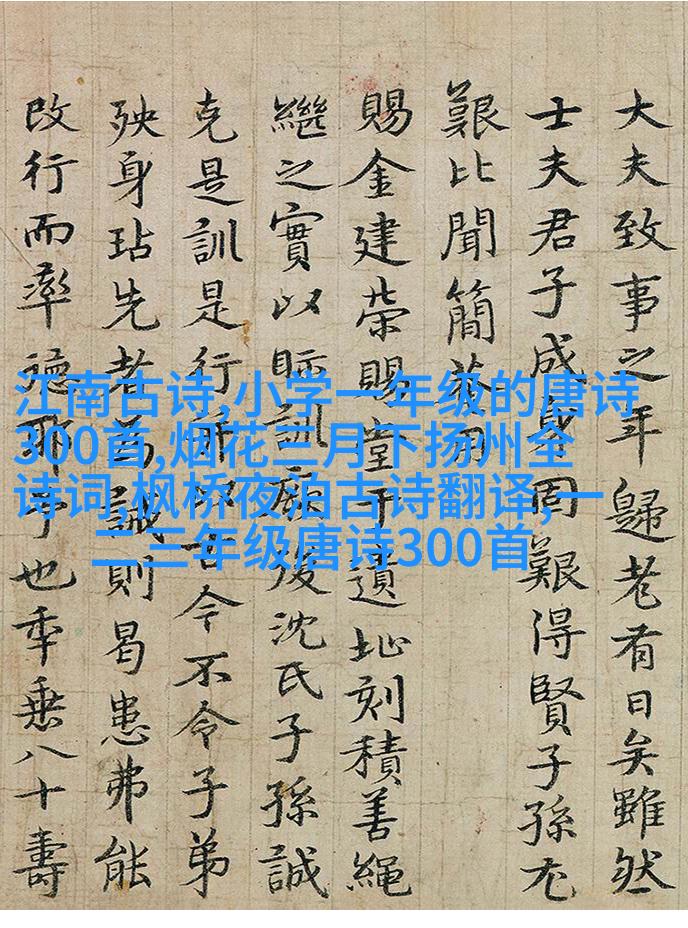 大夫致事之年歸老有日矣雖然
士夫君子成身固艱得賢子孫尤
艱比聞簡
賜金建榮賜堂于遺址刻積善繩
繼之實以眎訓厥後沈氏子孫誠
克是訓是行 今不令子弟
殃身玷先者為誡則曷患弗能
改行而率德耶予也年垂八十壽
江南古诗,小学一年级的唐诗
300首,烟花三月下扬州全
诗词,枫桥夜泊古诗翻译,一
二三年级唐诗300首